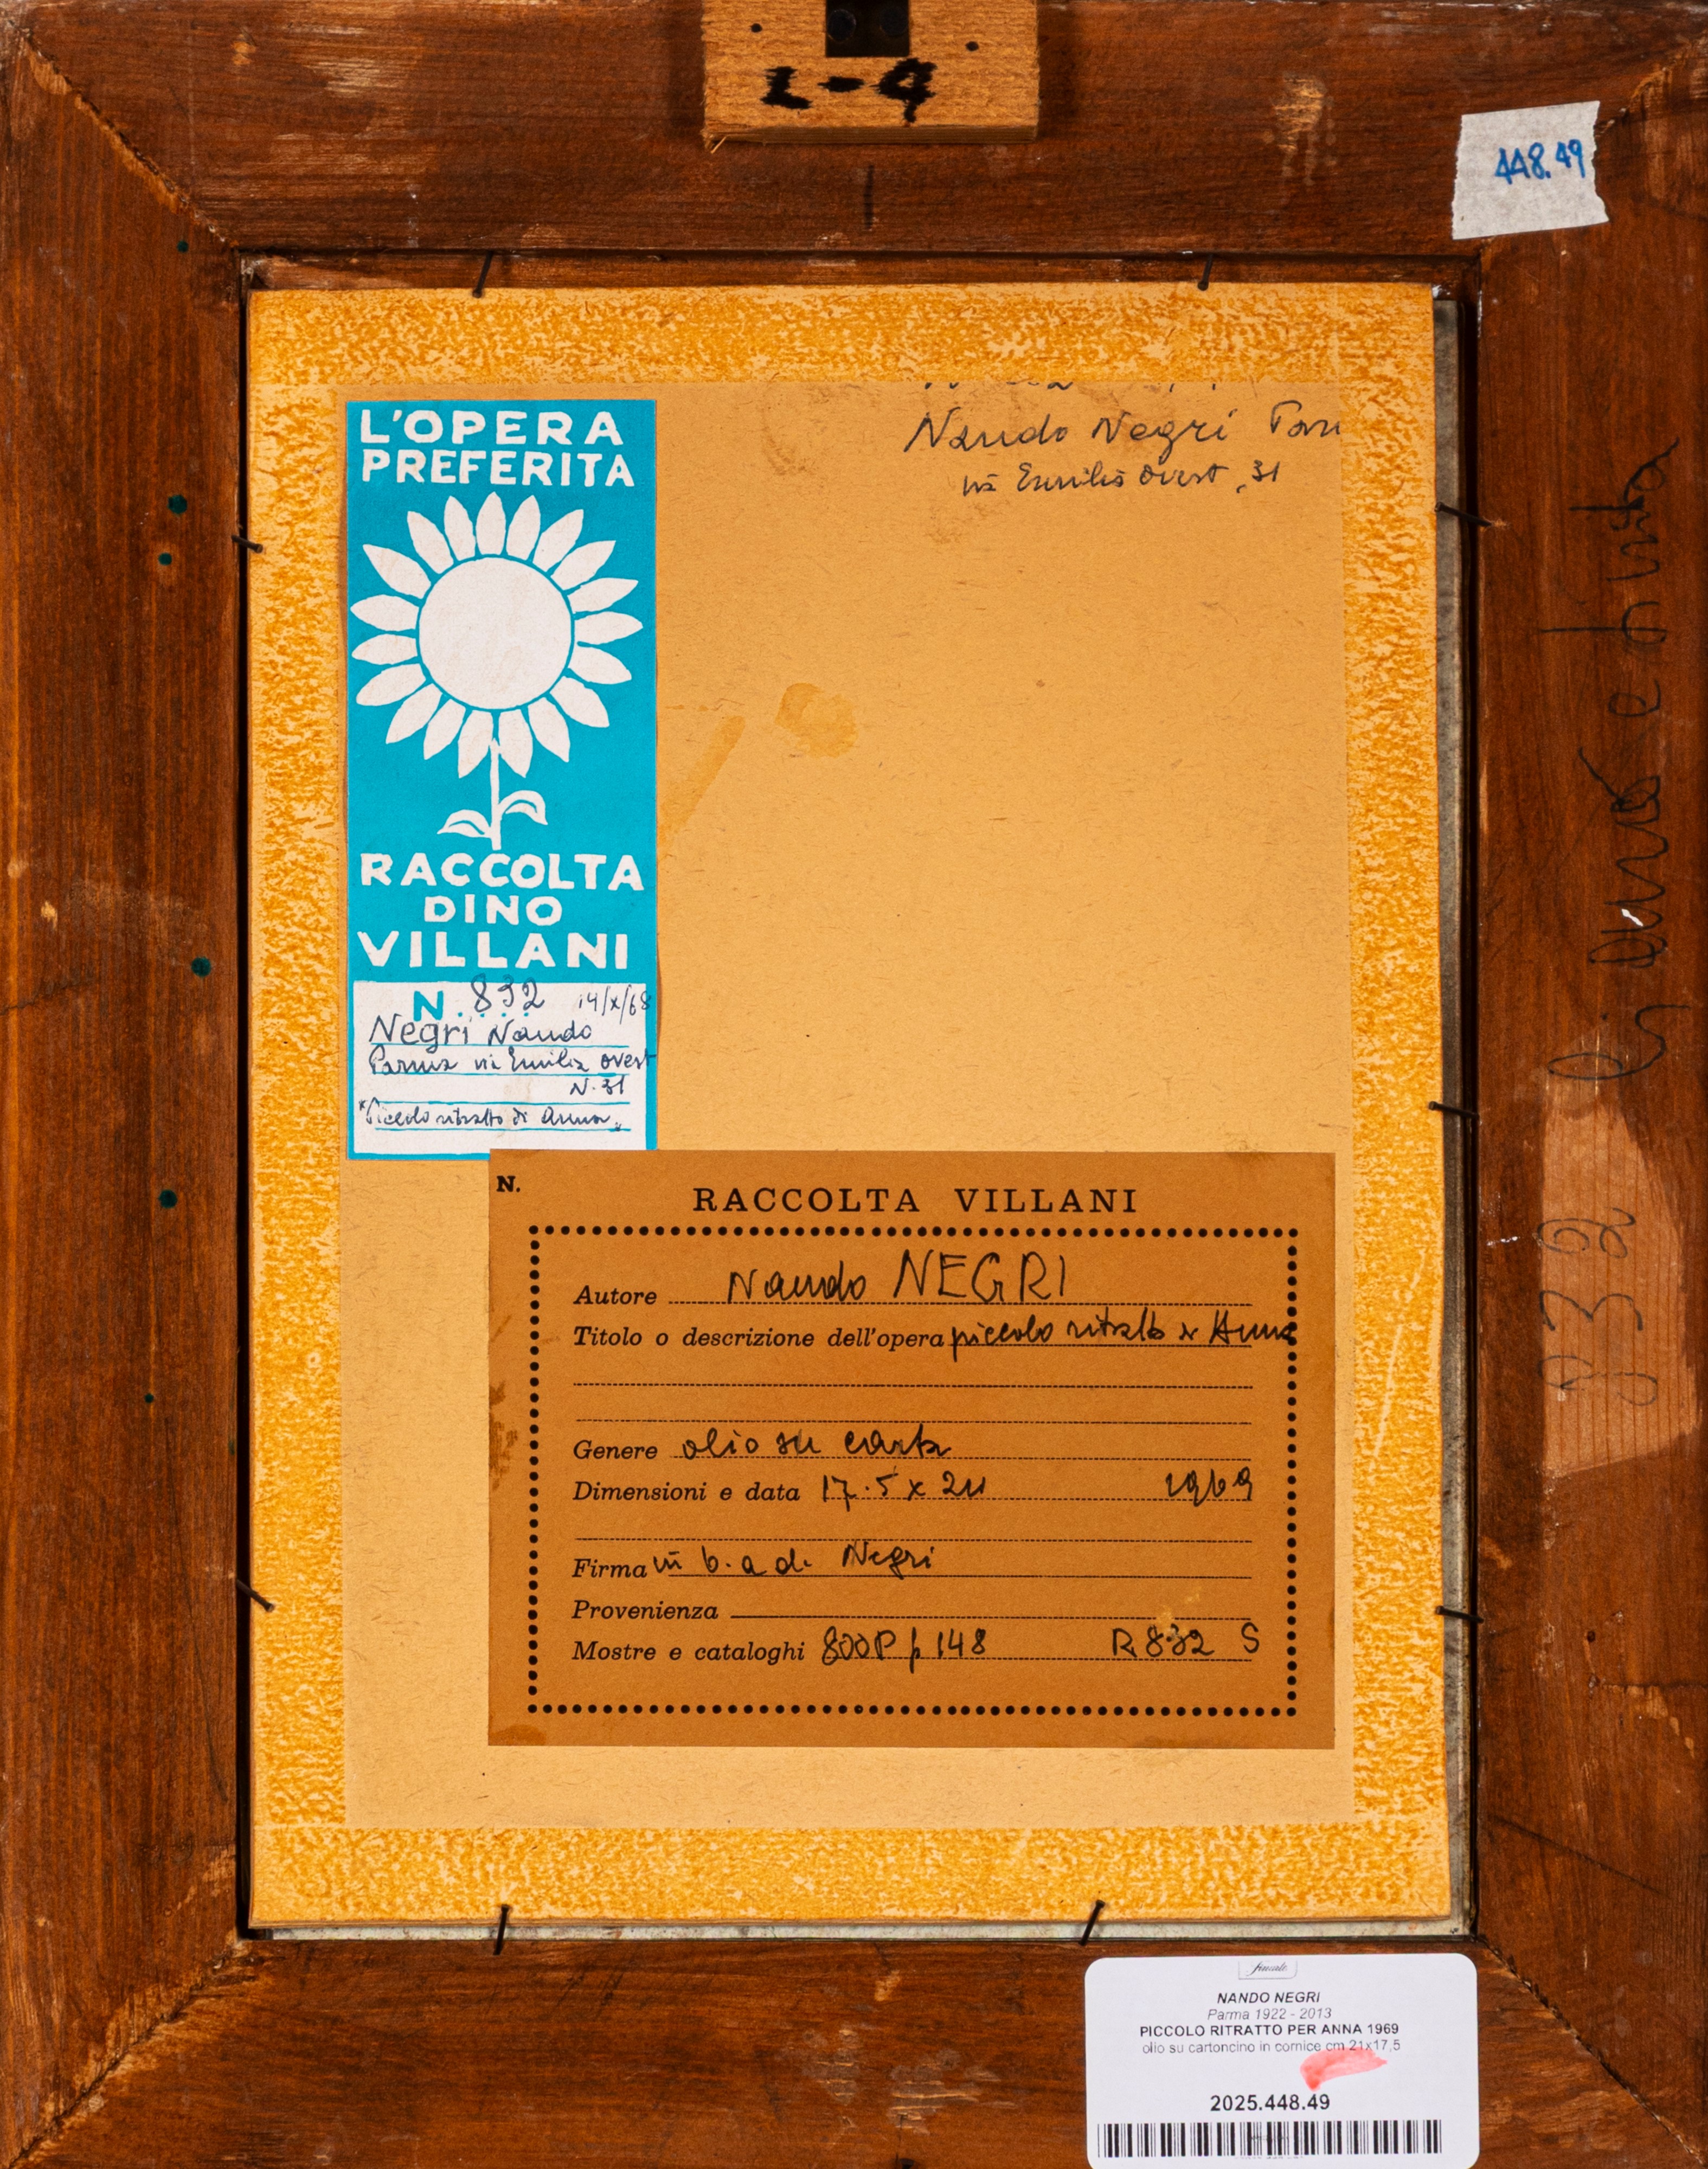 L-4
448.49
Nando Negri Par
via Emilia ovest, 31
L'OPERA
PREFERITA
RACCOLTA
DINO
VILLANI
N. 832 14/X/68
Negri Nando
Parma via Emilia ovest
N. 31
"Piccolo ritratto di Anna"
N.
RACCOLTA VILLANI
Autore Nando NEGRI
Titolo o descrizione dell'opera piccolo ritratto di Anna
Genere olio su carta
Dimensioni e data 17.5 x 21 1969
Firma in b. a d. Negri
Provenienza
Mostre e cataloghi 800P p 148 R 832 S
832
finarte
NANDO NEGRI
Parma 1922 - 2013
PICCOLO RITRATTO PER ANNA 1969
olio su cartoncino in cornice cm 21x17,5
2025.448.49